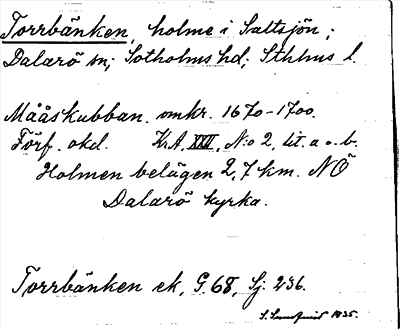 Torrbänken, holme i Saltsjön;
Dalarö sn; Sotholms hd; Sthlms l.
Mååskubban. omkr. 1670-1700.
Förf. okd. Kr.A, XXII, N:o 2, lit. a o. b.
Holmen belägen 2,7 km. NÖ
Dalarö kyrka.
Torrbänken ek, G. 68, Sj. 236.
1935.